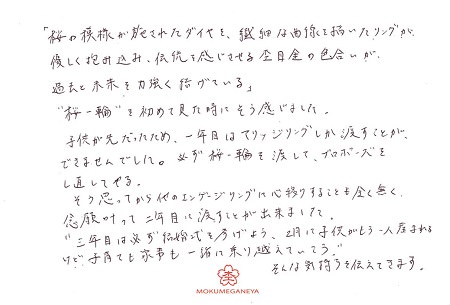 「桜の模様が施されたダイヤを、繊細な曲線で描いたリングが、
優しく抱み込み、伝統を感じさせる杢目金の色合いが、
過去と未来を力強く結げている」
"桜一輪"を初めて見た時にそう感じました。
子供が先だったため、一年目はマリッジリングしか渡すことが、
できませんでした。必ず桜一輪を渡して、プロポーズを
し直してやる。
そう思ってから他のエンゲージリングに心移りすることも全く無く、
念願叶って二年目に渡すことが出来ました。
"三年目は必ず結婚式を挙げよう、2月に子供がもう一人産まれる
けど子育ても家事も一緒に乗り越えていこう"
そんな気持ちを伝えてきます。
MOKUMEGANEYA